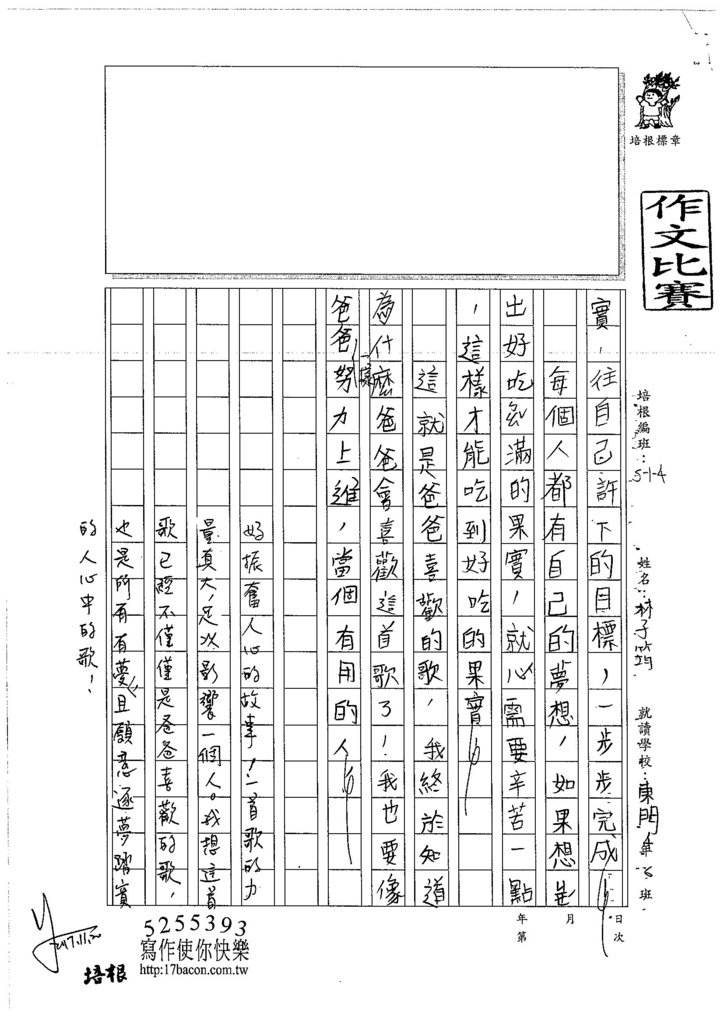 培根標章
作文比賽
培根編班：5-1-4 姓名：林子筠 就讀學校：東門 年 班
年 月 日
第 次
實，往自己許下的目標，一步步完成。
每個人都有自己的夢想，如果想
出好吃 滿的果實，就必需要辛苦一點
，這樣才能吃到好吃的果實。
這就是爸爸喜歡的歌，我終於知道
為什麼爸爸會喜歡這首歌了！我也要像
爸爸一樣努力上進，當個有用的人。
好振奮人心的故事！一首歌的力
量真大，足以影響一個人。我想這首
歌已經不僅僅是爸爸喜歡的歌，
也是所有有夢且願意逐夢踏實
的人心中的歌！
2017.11.20
5255393
寫作使你快樂
http:17bacon.com.tw
培根